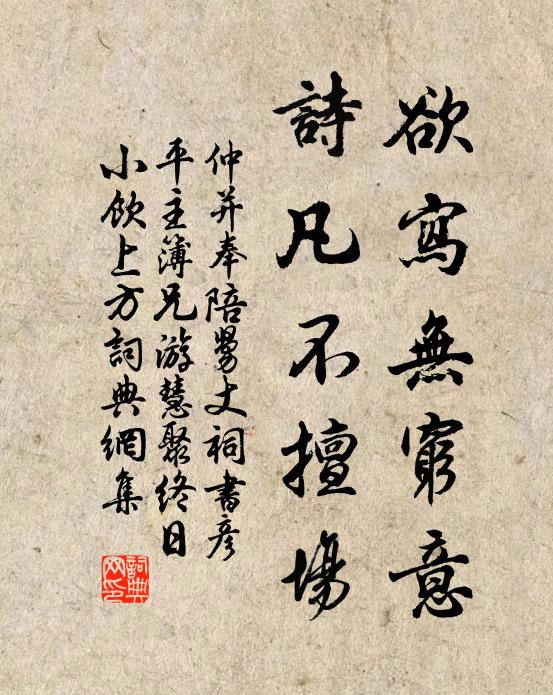 欲寫無窮意
詩凡不擅場
仲并奉陪舅丈祠書彥
平主簿兄游慧聚終日
小飲上方詞典網集
詞典
网印